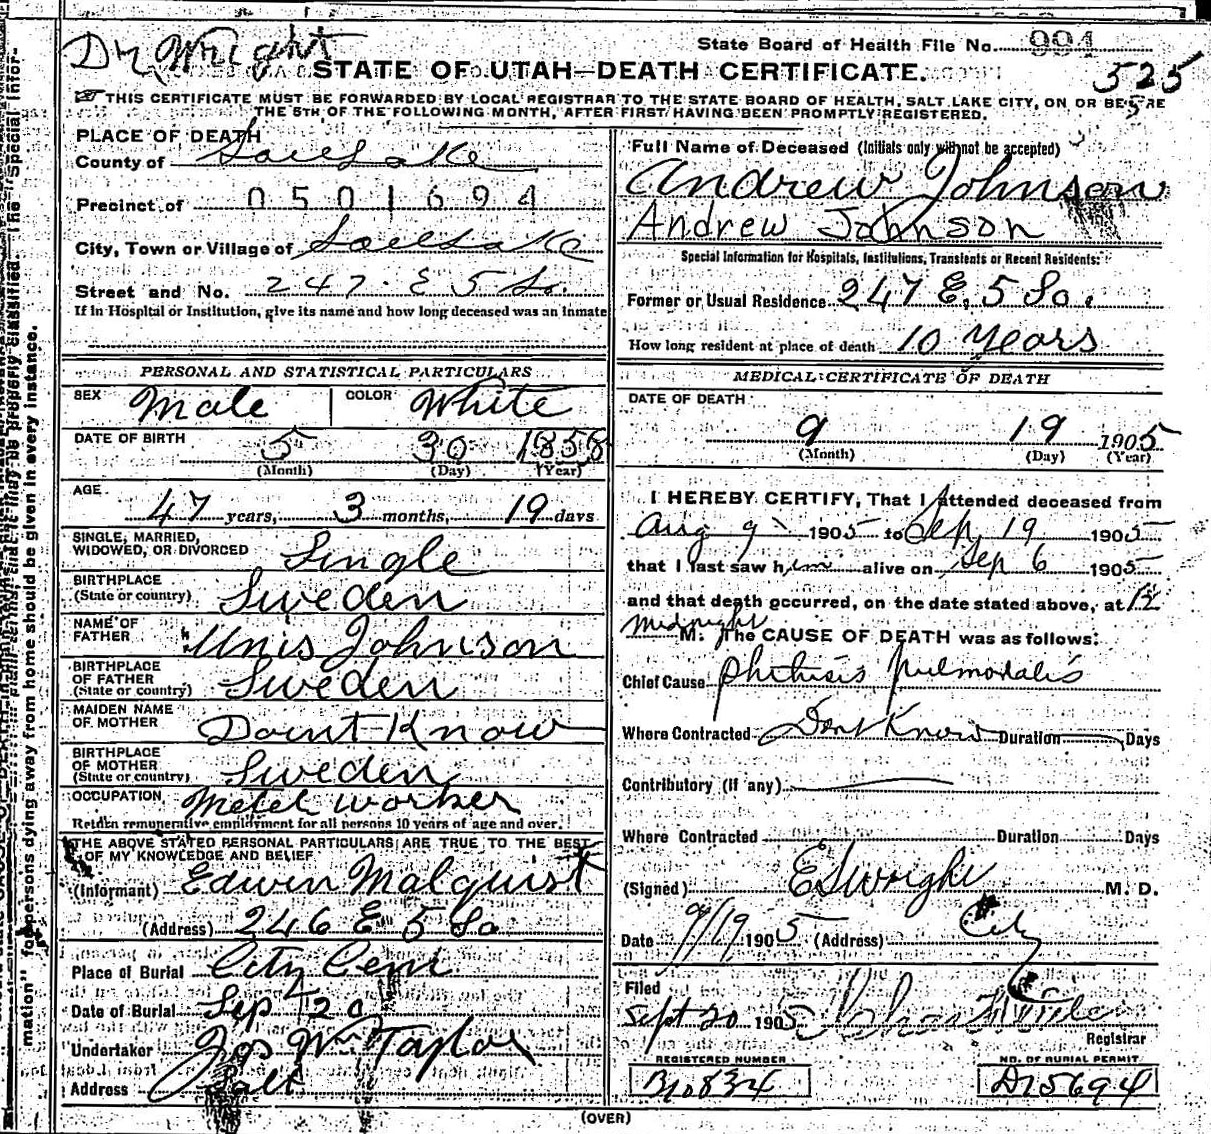 Dr. Wright
State Board of Health File No. 994
STATE OF UTAH—DEATH CERTIFICATE.
525
THIS CERTIFICATE MUST BE FORWARDED BY LOCAL REGISTRAR TO THE STATE BOARD OF HEALTH, SALT LAKE CITY, ON OR BEFORE
THE 5TH OF THE FOLLOWING MONTH, AFTER FIRST HAVING BEEN PROMPTLY REGISTERED.
PLACE OF DEATH
County of Salt Lake
Precinct of 0501694
City, Town or Village of Salt Lake
Street and No. 247 E 5 So.
If in Hospital or Institution, give its name and how long deceased was an inmate
PERSONAL AND STATISTICAL PARTICULARS
SEX Male COLOR White
DATE OF BIRTH 5 30 1858
(Month) (Day) (Year)
AGE 47 years, 3 months, 19 days
SINGLE, MARRIED,
WIDOWED, OR DIVORCED Single
BIRTHPLACE
(State or country) Sweden
NAME OF
FATHER Unis Johnson
BIRTHPLACE
OF FATHER
(State or country) Sweden
MAIDEN NAME
OF MOTHER Dount Know
BIRTHPLACE
OF MOTHER
(State or country) Sweden
OCCUPATION Metel worker
Return remunerative employment for all persons 10 years of age and over.
THE ABOVE STATED PERSONAL PARTICULARS ARE TRUE TO THE BEST
OF MY KNOWLEDGE AND BELIEF
(Informant) Edwin Malquist
(Address) 246 E 5 So
Place of Burial City Cem
Date of Burial Sep 20
Undertaker Jos Wm Taylor
Address Salt
Full Name of Deceased (Initials only will not be accepted)
Andrew Johnson
Andrew Johnson
Special Information for Hospitals, Institutions, Transients or Recent Residents:
Former or Usual Residence 247 E. 5 So.
How long resident at place of death 10 Years
MEDICAL CERTIFICATE OF DEATH
DATE OF DEATH
9 19 1905
(Month) (Day) (Year)
I HEREBY CERTIFY, That I attended deceased from
Aug 9 1905 to Sep 19 1905
that I last saw him alive on Sep 6 1905
and that death occurred, on the date stated above, at 12
midnight M. The CAUSE OF DEATH was as follows:
Chief Cause phthisis pulmonalis
Where Contracted Dont Know Duration Days
Contributory (if any)
Where Contracted Duration Days
(Signed) E S Wright M. D.
Date 9/19 1905 (Address) City
Filed
Sept 20 1905
Registrar
REGISTERED NUMBER NO. OF BURIAL PERMIT
B10834 D15694
(OVER)
mation" for persons dying away from home should be given in every instance.